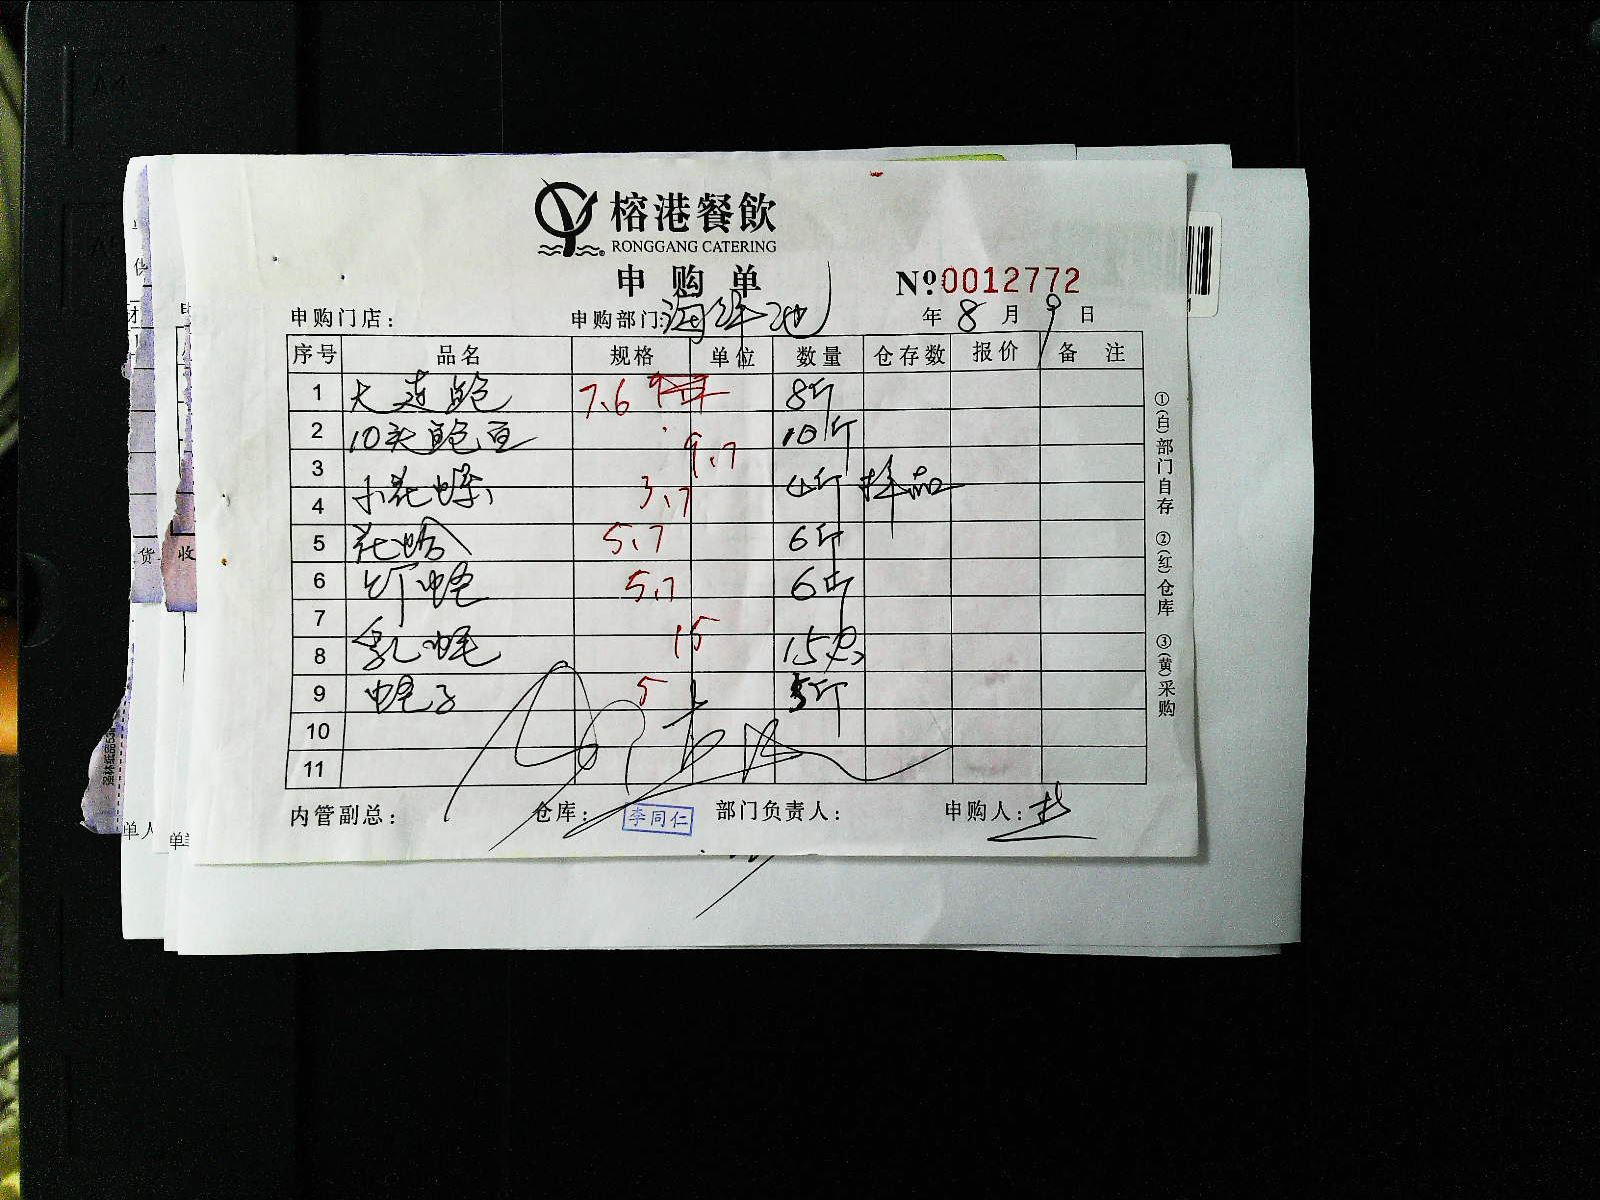 榕港餐飲
RONGGANG CATERING
申购单
Nº0012772
申购门店： 申购部门：海鲜池 年 8 月 9 日
序号 品名 规格 单位 数量 仓存数 报价 备 注
1 大连鲍 7.6 8斤
2 10头鲍 10斤
3 9.7
4 小花螺 3.7 4斤 样品
5 花蛤 5.7 6斤
6 圣子 5.7 6斤
7
8 15 15只
9 5 5斤
10
11
内管副总： 仓库： 李同仁 部门负责人： 申购人：
①(白)部门自存 ②(红)仓库 ③(黄)采购